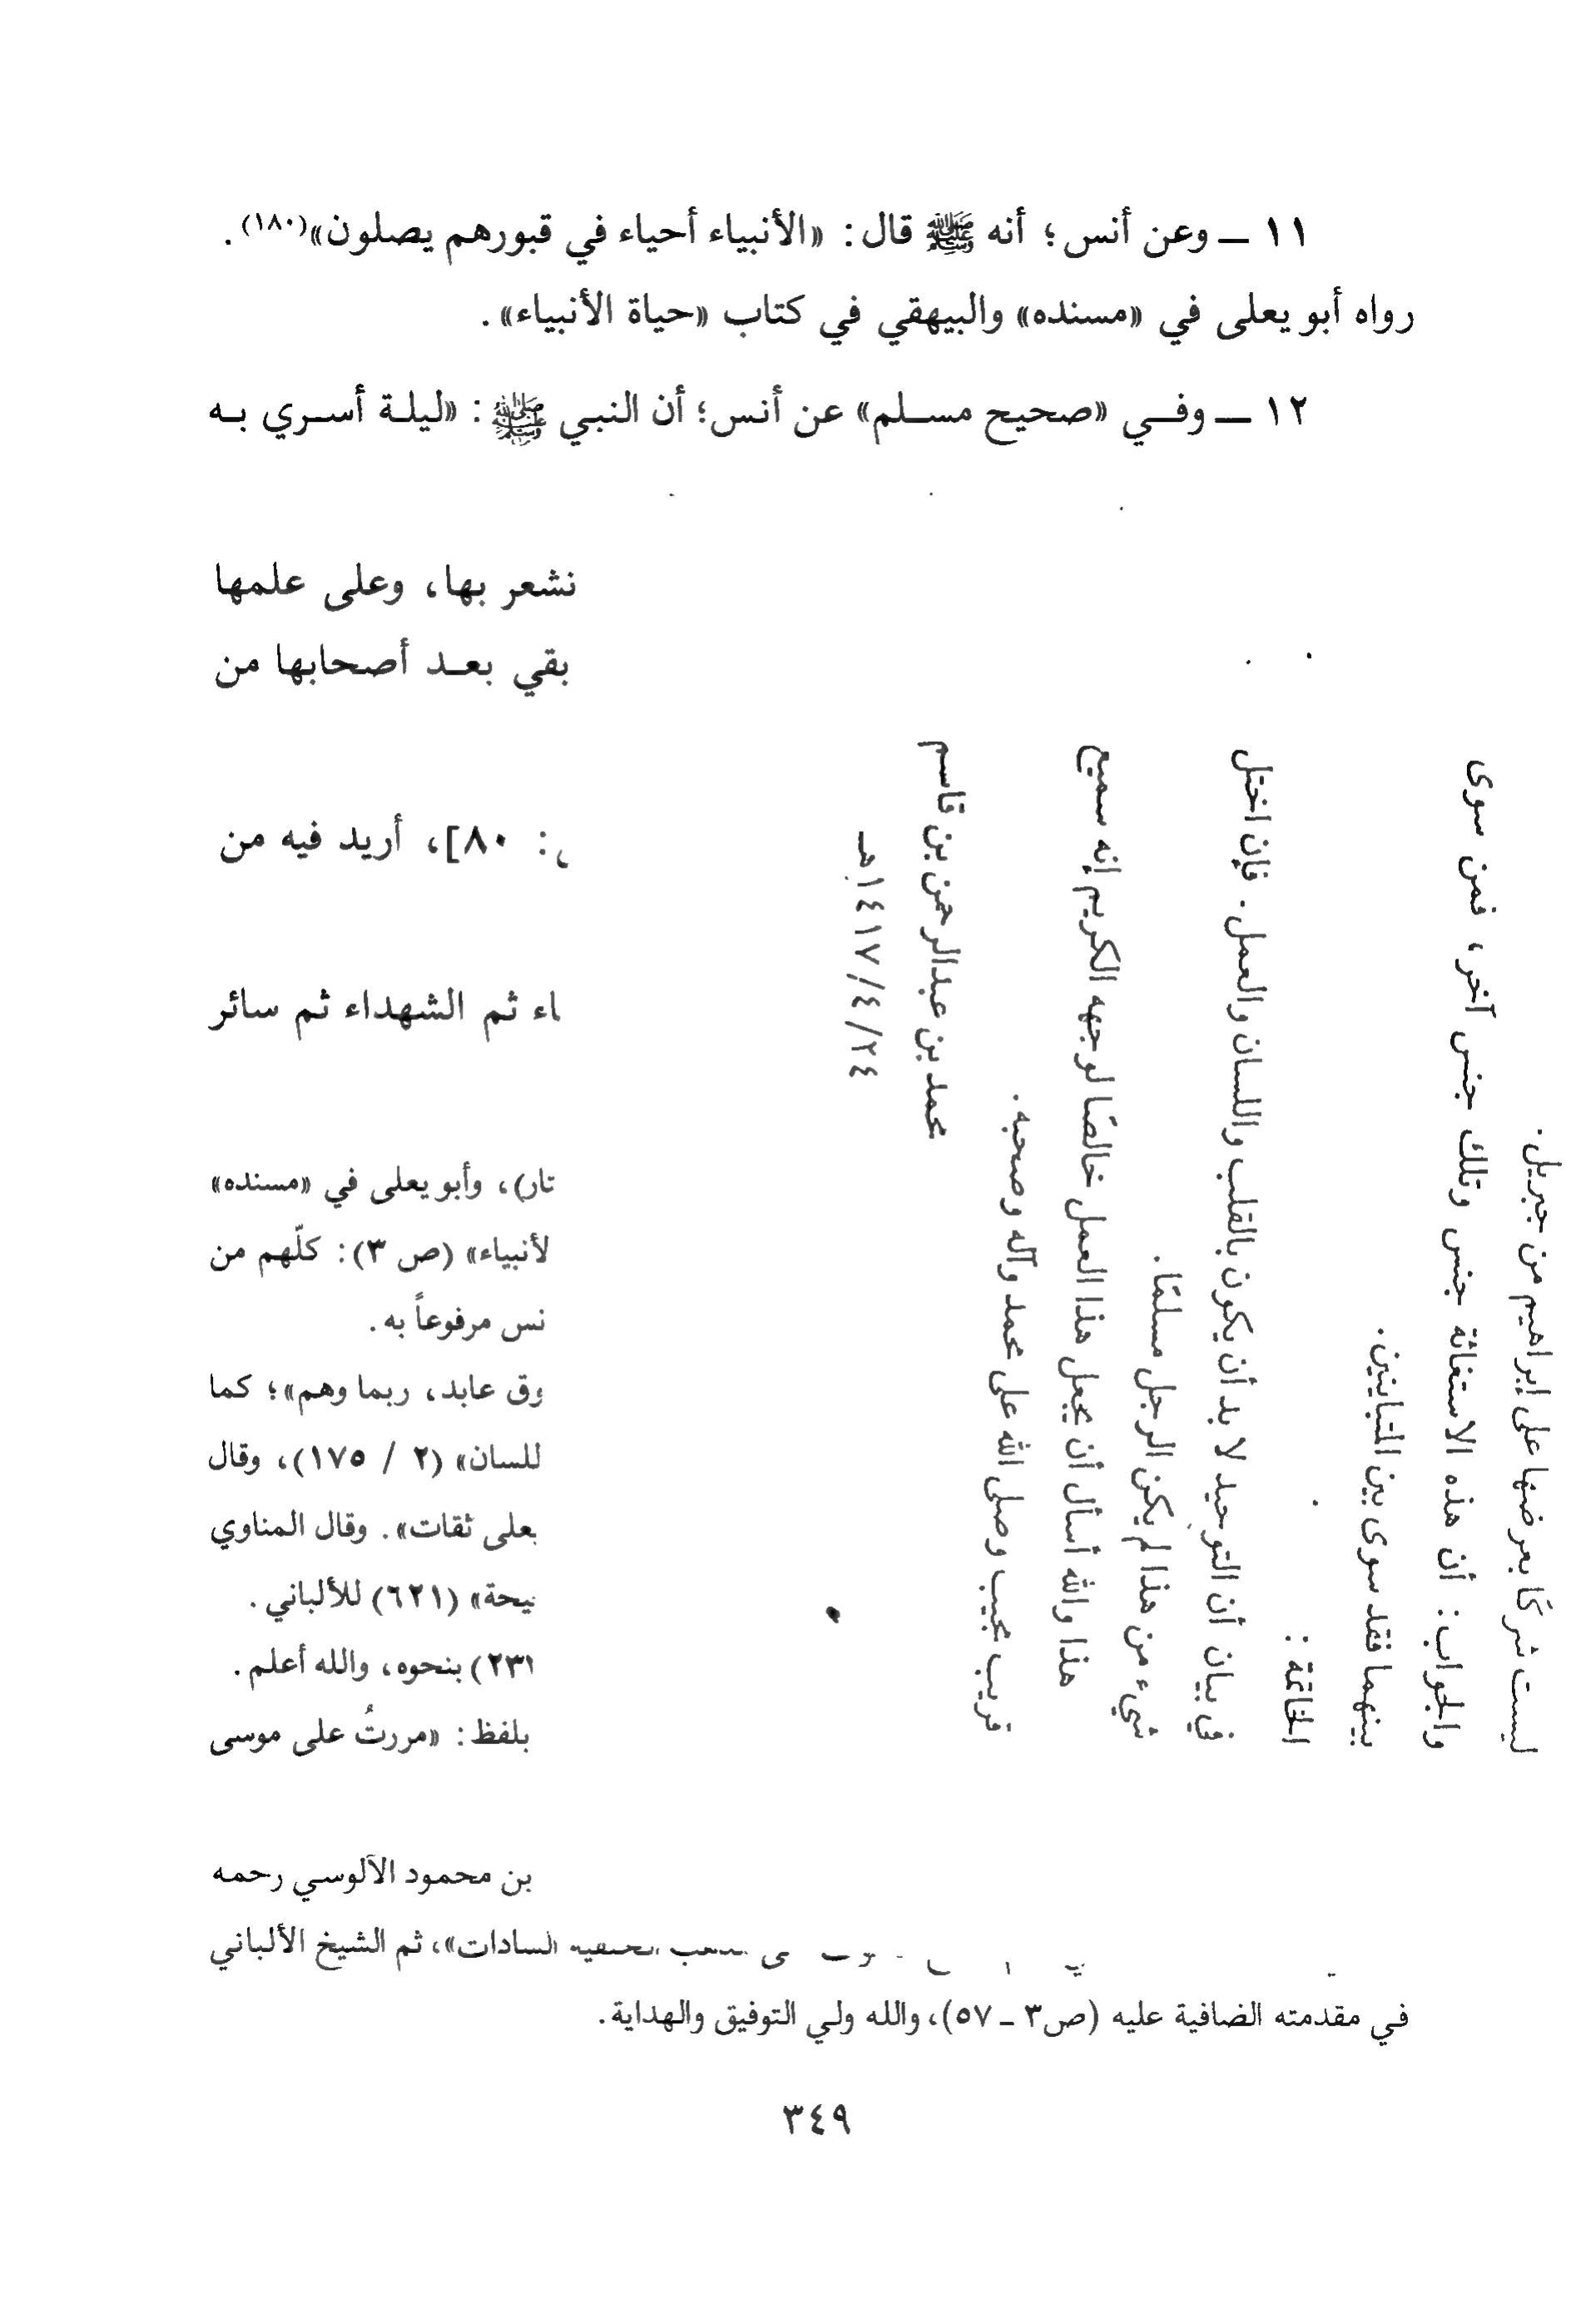 ١١ ــ وعن أنس؛ أنه ﷺ قال: «الأنبياء أحياء في قبورهم يصلون»(١٨٠).
رواه أبو يعلى في «مسنده» والبيهقي في كتاب «حياة الأنبياء».
١٢ ــ وفي «صحيح مسلم» عن أنس؛ أن النبي ﷺ: «ليلة أسري به
نشعر بها، وعلى علمها
بقي بعد أصحابها من
: ٨٠]، أريد فيه من
اء ثم الشهداء ثم سائر
تار)، وأبو يعلى في «مسنده»
لأنبياء» (ص ٣): كلّهم من
نس مرفوعاً به.
وق عابد، ربما وهم»؛ كما
للسان» (٢ / ١٧٥)، وقال
يعلى ثقات». وقال المناوي
يحة» (٦٢١) للألباني.
٢٣١) بنحوه، والله أعلم.
بلفظ: «مررتُ على موسى
بن محمود الآلوسي رحمه
السادات»، ثم الشيخ الألباني
في مقدمته الضافية عليه (ص٣ ـ ٥٧)، والله ولي التوفيق والهداية.
٣٤٩
ليست شركًا بعرضها على إبراهيم من جبريل.
والجواب: أن هذه الاستغاثة جنس وتلك جنس آخر، فمن سوى
بينهما فقد سوى بين المتباينين.
الخاتمة:
في بيان أن التوحيد لا بد أن يكون بالقلب واللسان والعمل. فإن اختل
شيء من هذا لم يكن الرجل مسلمًا.
هذا والله أسأل أن يجعل هذا العمل خالصًا لوجهه الكريم إنه سميع
قريب مجيب وصلى الله على محمد وآله وصحبه.
محمد بن عبدالرحمن بن قاسم
٢٤/٤/١٤١٧هـ